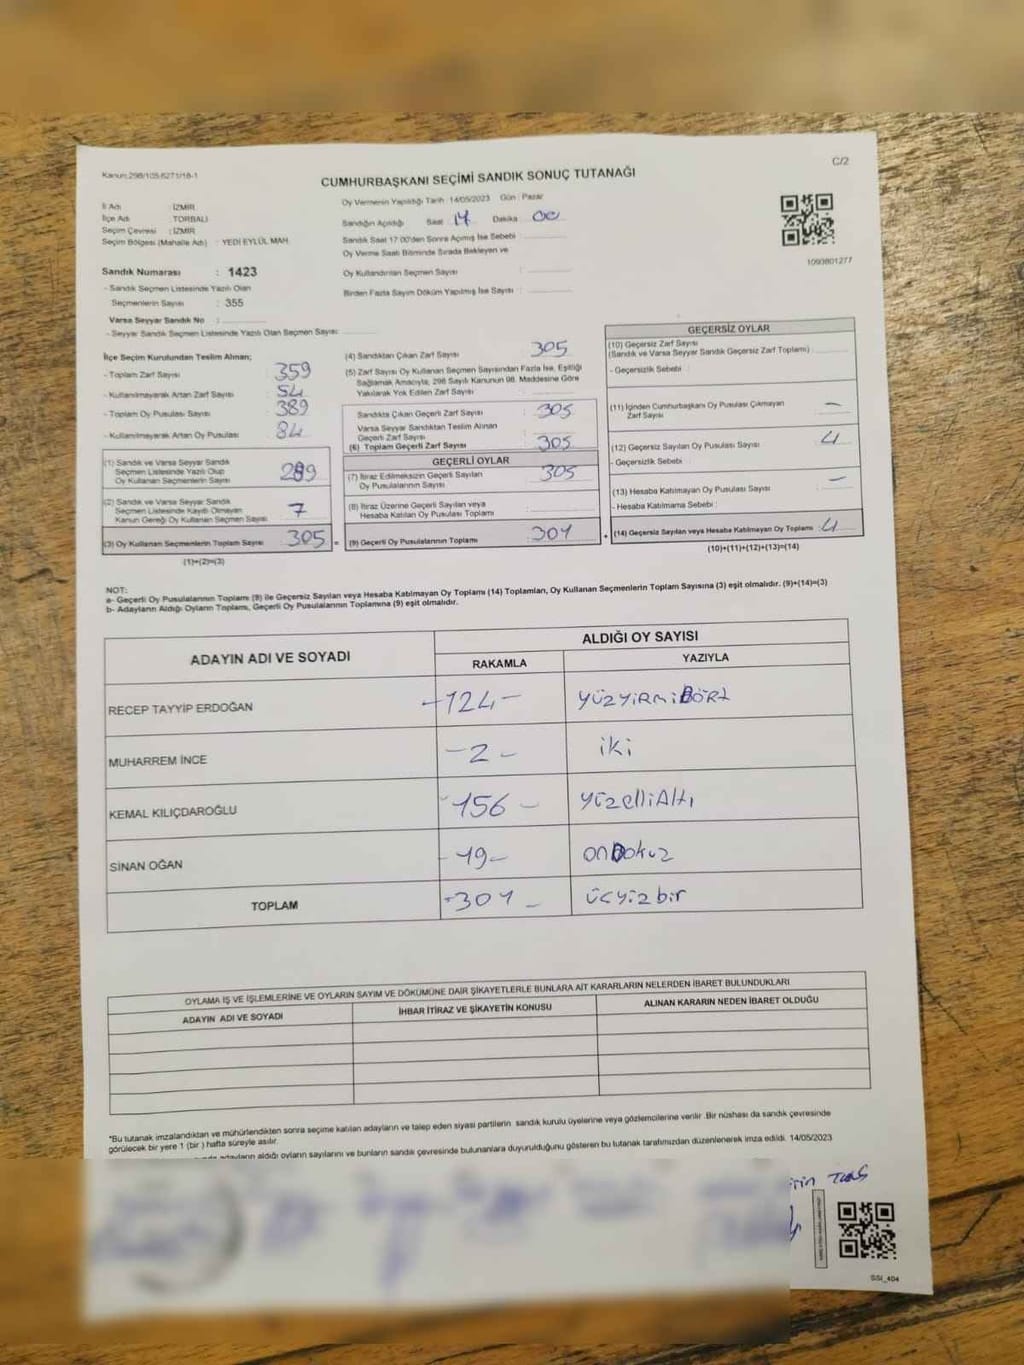 C/2
Kanun:298/105-6271/18-1
CUMHURBAŞKANI SEÇİMİ SANDIK SONUÇ TUTANAĞI
İl Adı : İZMİR
İlçe Adı : TORBALI
Seçim Çevresi : İZMİR
Seçim Bölgesi (Mahalle Adı) : YEDİ EYLÜL MAH.
Sandık Numarası : 1423
- Sandık Seçmen Listesinde Yazılı Olan
Seçmenlerin Sayısı : 355
Varsa Seyyar Sandık No :
- Seyyar Sandık Seçmen Listesinde Yazılı Olan Seçmen Sayısı:
Oy Vermenin Yapıldığı Tarih :14/05/2023 Gün : Pazar
Sandığın Açıldığı Saat 17 Dakika 00
Sandık Saat 17:00'den Sonra Açılmış İse Sebebi :
Oy Verme Saati Bitiminde Sırada Bekleyen ve
Oy Kullandırılan Seçmen Sayısı :
Birden Fazla Sayım Döküm Yapılmış İse Sayısı :
1093801277
İlçe Seçim Kurulundan Teslim Alınan;
- Toplam Zarf Sayısı : 359
- Kullanılmayarak Artan Zarf Sayısı : 54
- Toplam Oy Pusulası Sayısı : 389
- Kullanılmayarak Artan Oy Pusulası : 84
(1) Sandık ve Varsa Seyyar Sandık
Seçmen Listesinde Yazılı Olup
Oy Kullanan Seçmenlerin Sayısı
(2) Sandık ve Varsa Seyyar Sandık
Seçmen Listesinde Kayıtlı Olmayan
Kanun Gereği Oy Kullanan Seçmen Sayısı 7
(3) Oy Kullanan Seçmenlerin Toplam Sayısı 305
(1)+(2)=(3)
(4) Sandıktan Çıkan Zarf Sayısı : 305
(5) Zarf Sayısı Oy Kullanan Seçmen Sayısından Fazla İse, Eşitliği
Sağlamak Amacıyla, 298 Sayılı Kanunun 98. Maddesine Göre
Yakılarak Yok Edilen Zarf Sayısı :
Sandıkta Çıkan Geçerli Zarf Sayısı : 305
Varsa Seyyar Sandıktan Teslim Alınan
Geçerli Zarf Sayısı
(6) Toplam Geçerli Zarf Sayısı : 305
GEÇERLİ OYLAR
(7) İtiraz Edilmeksizin Geçerli Sayılan
Oy Pusulalarının Sayısı : 305
(8) İtiraz Üzerine Geçerli Sayılan veya
Hesaba Katılan Oy Pusulası Toplamı
= (9) Geçerli Oy Pusulalarının Toplamı : 301
GEÇERSİZ OYLAR
(10) Geçersiz Zarf Sayısı
(Sandık ve Varsa Seyyar Sandık Geçersiz Zarf Toplamı) :
- Geçersizlik Sebebi :
(11) İçinden Cumhurbaşkanı Oy Pusulası Çıkmayan
Zarf Sayısı : –
(12) Geçersiz Sayılan Oy Pusulası Sayısı : 4
- Geçersizlik Sebebi :
(13) Hesaba Katılmayan Oy Pusulası Sayısı : –
- Hesaba Katılmama Sebebi :
+ (14) Geçersiz Sayılan veya Hesaba Katılmayan Oy Toplamı : 4
(10)+(11)+(12)+(13)=(14)
NOT:
a- Geçerli Oy Pusulalarının Toplamı (9) ile Geçersiz Sayılan veya Hesaba Katılmayan Oy Toplamı (14) Toplamları, Oy Kullanan Seçmenlerin Toplam Sayısına (3) eşit olmalıdır. (9)+(14)=(3)
b- Adayların Aldığı Oyların Toplamı, Geçerli Oy Pusulalarının Toplamına (9) eşit olmalıdır.
ADAYIN ADI VE SOYADI ALDIĞI OY SAYISI
RAKAMLA YAZIYLA
RECEP TAYYİP ERDOĞAN -124- YÜZYİRMİDÖRT
MUHARREM İNCE -2- iki
KEMAL KILIÇDAROĞLU -156- yüzelliAltı
SİNAN OĞAN -19- onDokuz
TOPLAM -301- üçyüzbir
OYLAMA İŞ VE İŞLEMLERİNE VE OYLARIN SAYIM VE DÖKÜMÜNE DAİR ŞİKAYETLERLE BUNLARA AİT KARARLARIN NELERDEN İBARET BULUNDUKLARI
ADAYIN ADI VE SOYADI İHBAR İTİRAZ VE ŞİKAYETİN KONUSU ALINAN KARARIN NEDEN İBARET OLDUĞU
*Bu tutanak imzalandıktan ve mühürlendikten sonra seçime katılan adayların ve talep eden siyasi partilerin sandık kurulu üyelerine veya gözlemcilerine verilir .Bir nüshası da sandık çevresinde
görülecek bir yere 1 (bir ) hafta süreyle asılır.
adayların aldığı oyların sayılarını ve bunların sandık çevresinde bulunanlara duyurulduğunu gösteren bu tutanak tarafımızdan düzenlenerek imza edildi. 14/05/2023
SSI_404